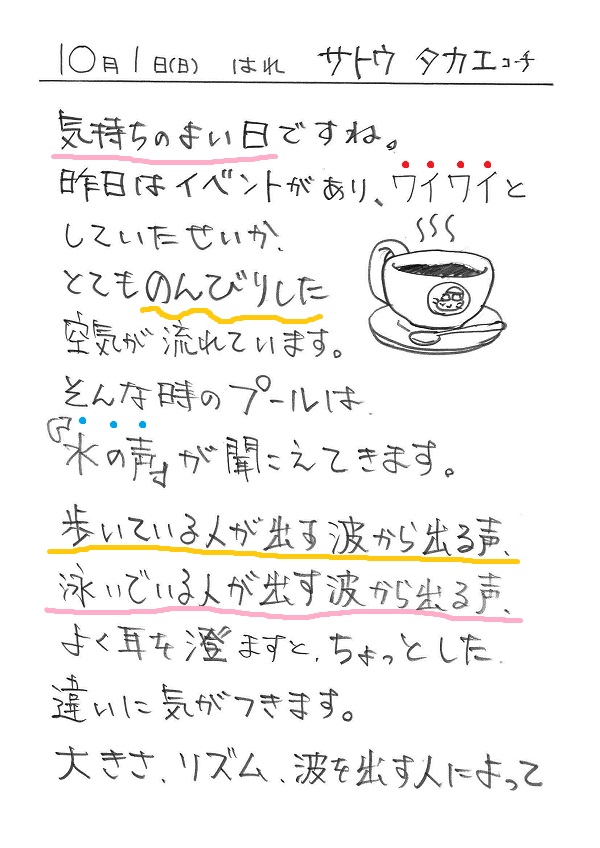 10月1日(日) はれ サトウ タカエコーチ
気持ちのよい日ですね。
昨日はイベントがあり、ワイワイと
していたせいか、
とてものんびりした
空気が流れています。
そんな時のプールは、
『水の声』が聞こえてきます。
歩いている人が出す波から出る声、
泳いでいる人が出す波から出る声、
よく耳を澄ますと、ちょっとした
違いに気がつきます。
大きさ、リズム、波を出す人によって